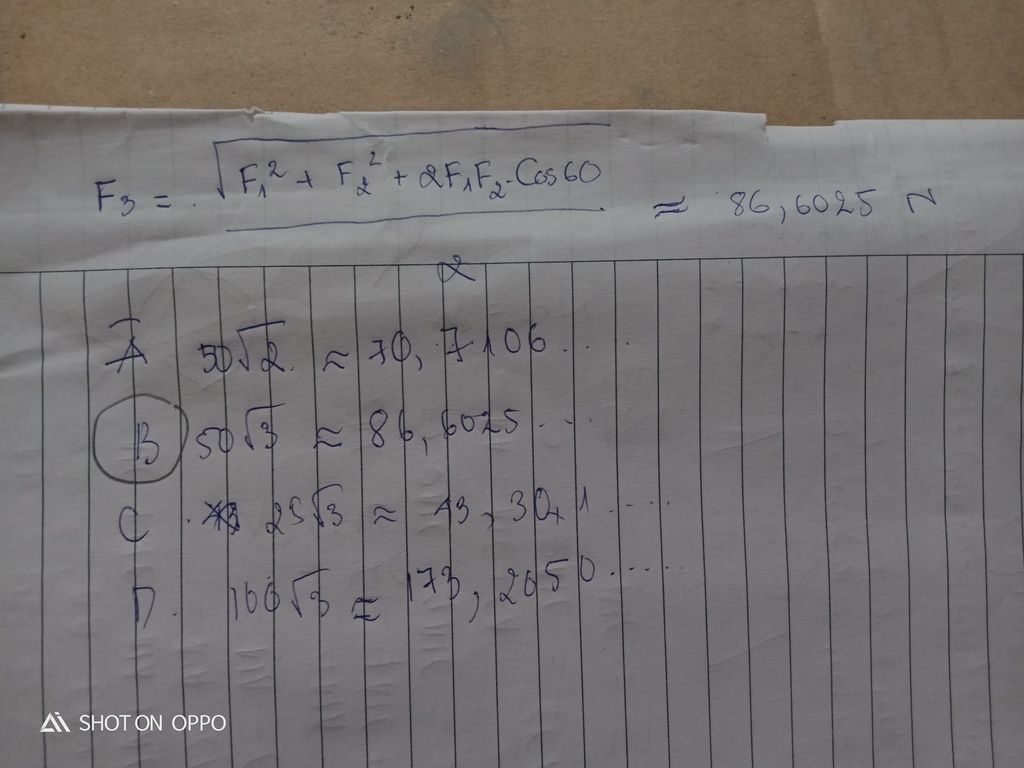 F₃ = √F₁² + F₂² + 2F₁F₂.Cos60 ≈ 86,6025 N
2
A 50√2 ≈ 70,7106....
B 50√3 ≈ 86,6025...
C. 25√3 ≈ 43,301....
D. 100√3 ≈ 173,2050.....
SHOT ON OPPO